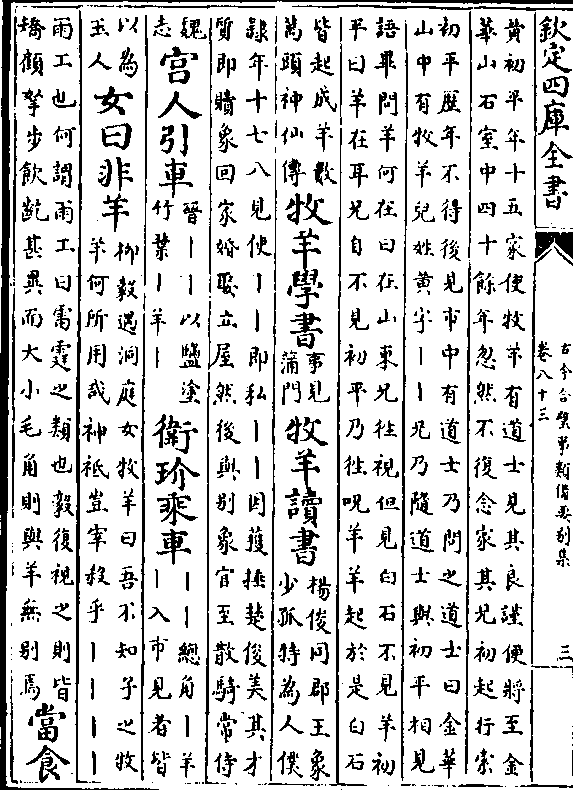 欽定四庫全書
古今合璧事類備要别集
卷八十三
三
黄初平年十五家使牧羊有道士見其良謹便將至金
華山石室中四十餘年忽然不復念家其兄初起行索
初平歷年不得後見市中有道士乃問之道士曰金華
山中有牧羊兒姓黄字丨丨兄乃隨道士與初平相見
語畢問羊何在曰在山東兄徃視但見白石不見羊初
平曰羊在耳兄自不見初平乃徃呪羊羊起於是白石
皆起成羊數
萬頭神仙傳
牧羊學書
事見
蒲門
牧羊讀書
楊俊同郡王象
少孤特為人僕
隷年十七八見使丨丨即私丨丨因獲捶楚俊美其才
質即贖象回家婚娶立屋然後與别象官至散騎常侍
魏
志
宫人引車
晉丨丨以鹽塗
竹葉丨羊丨
衛玠乘車
丨丨總角丨羊
丨入市見者皆
以為
玉人
女曰非羊
柳毅遇洞庭女牧羊曰吾不知子之牧
羊何所用哉神祇豈宰殺乎丨丨丨丨
雨工也何謂雨工曰雷霆之類也毅復視之則皆
矯顧挐步飲齕甚異而大小毛角則與羊無别焉
當食